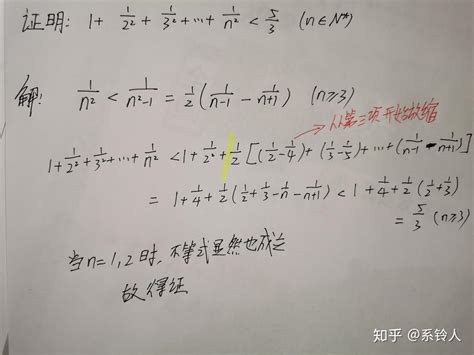 证明: 1+1/2²+1/3²+…+1/n²<5/3 (n∈N*)
解: 1/n²<1/(n²-1)=1/2(1/(n-1)-1/(n+1)) (n≥3)
从第三项开始放缩
1+1/2²+1/3²+…+1/n²<1+1/2²+1/2[(1/2-1/4)+(1/3-1/5)+…+(1/(n-1)-1/(n+1))]
=1+1/4+1/2(1/2+1/3-1/n-1/(n+1))<1+1/4+1/2(1/2+1/3)
=5/3 (n≥3)
当n=1,2时,不等式显然也成立
故得证
知乎 @系铃人